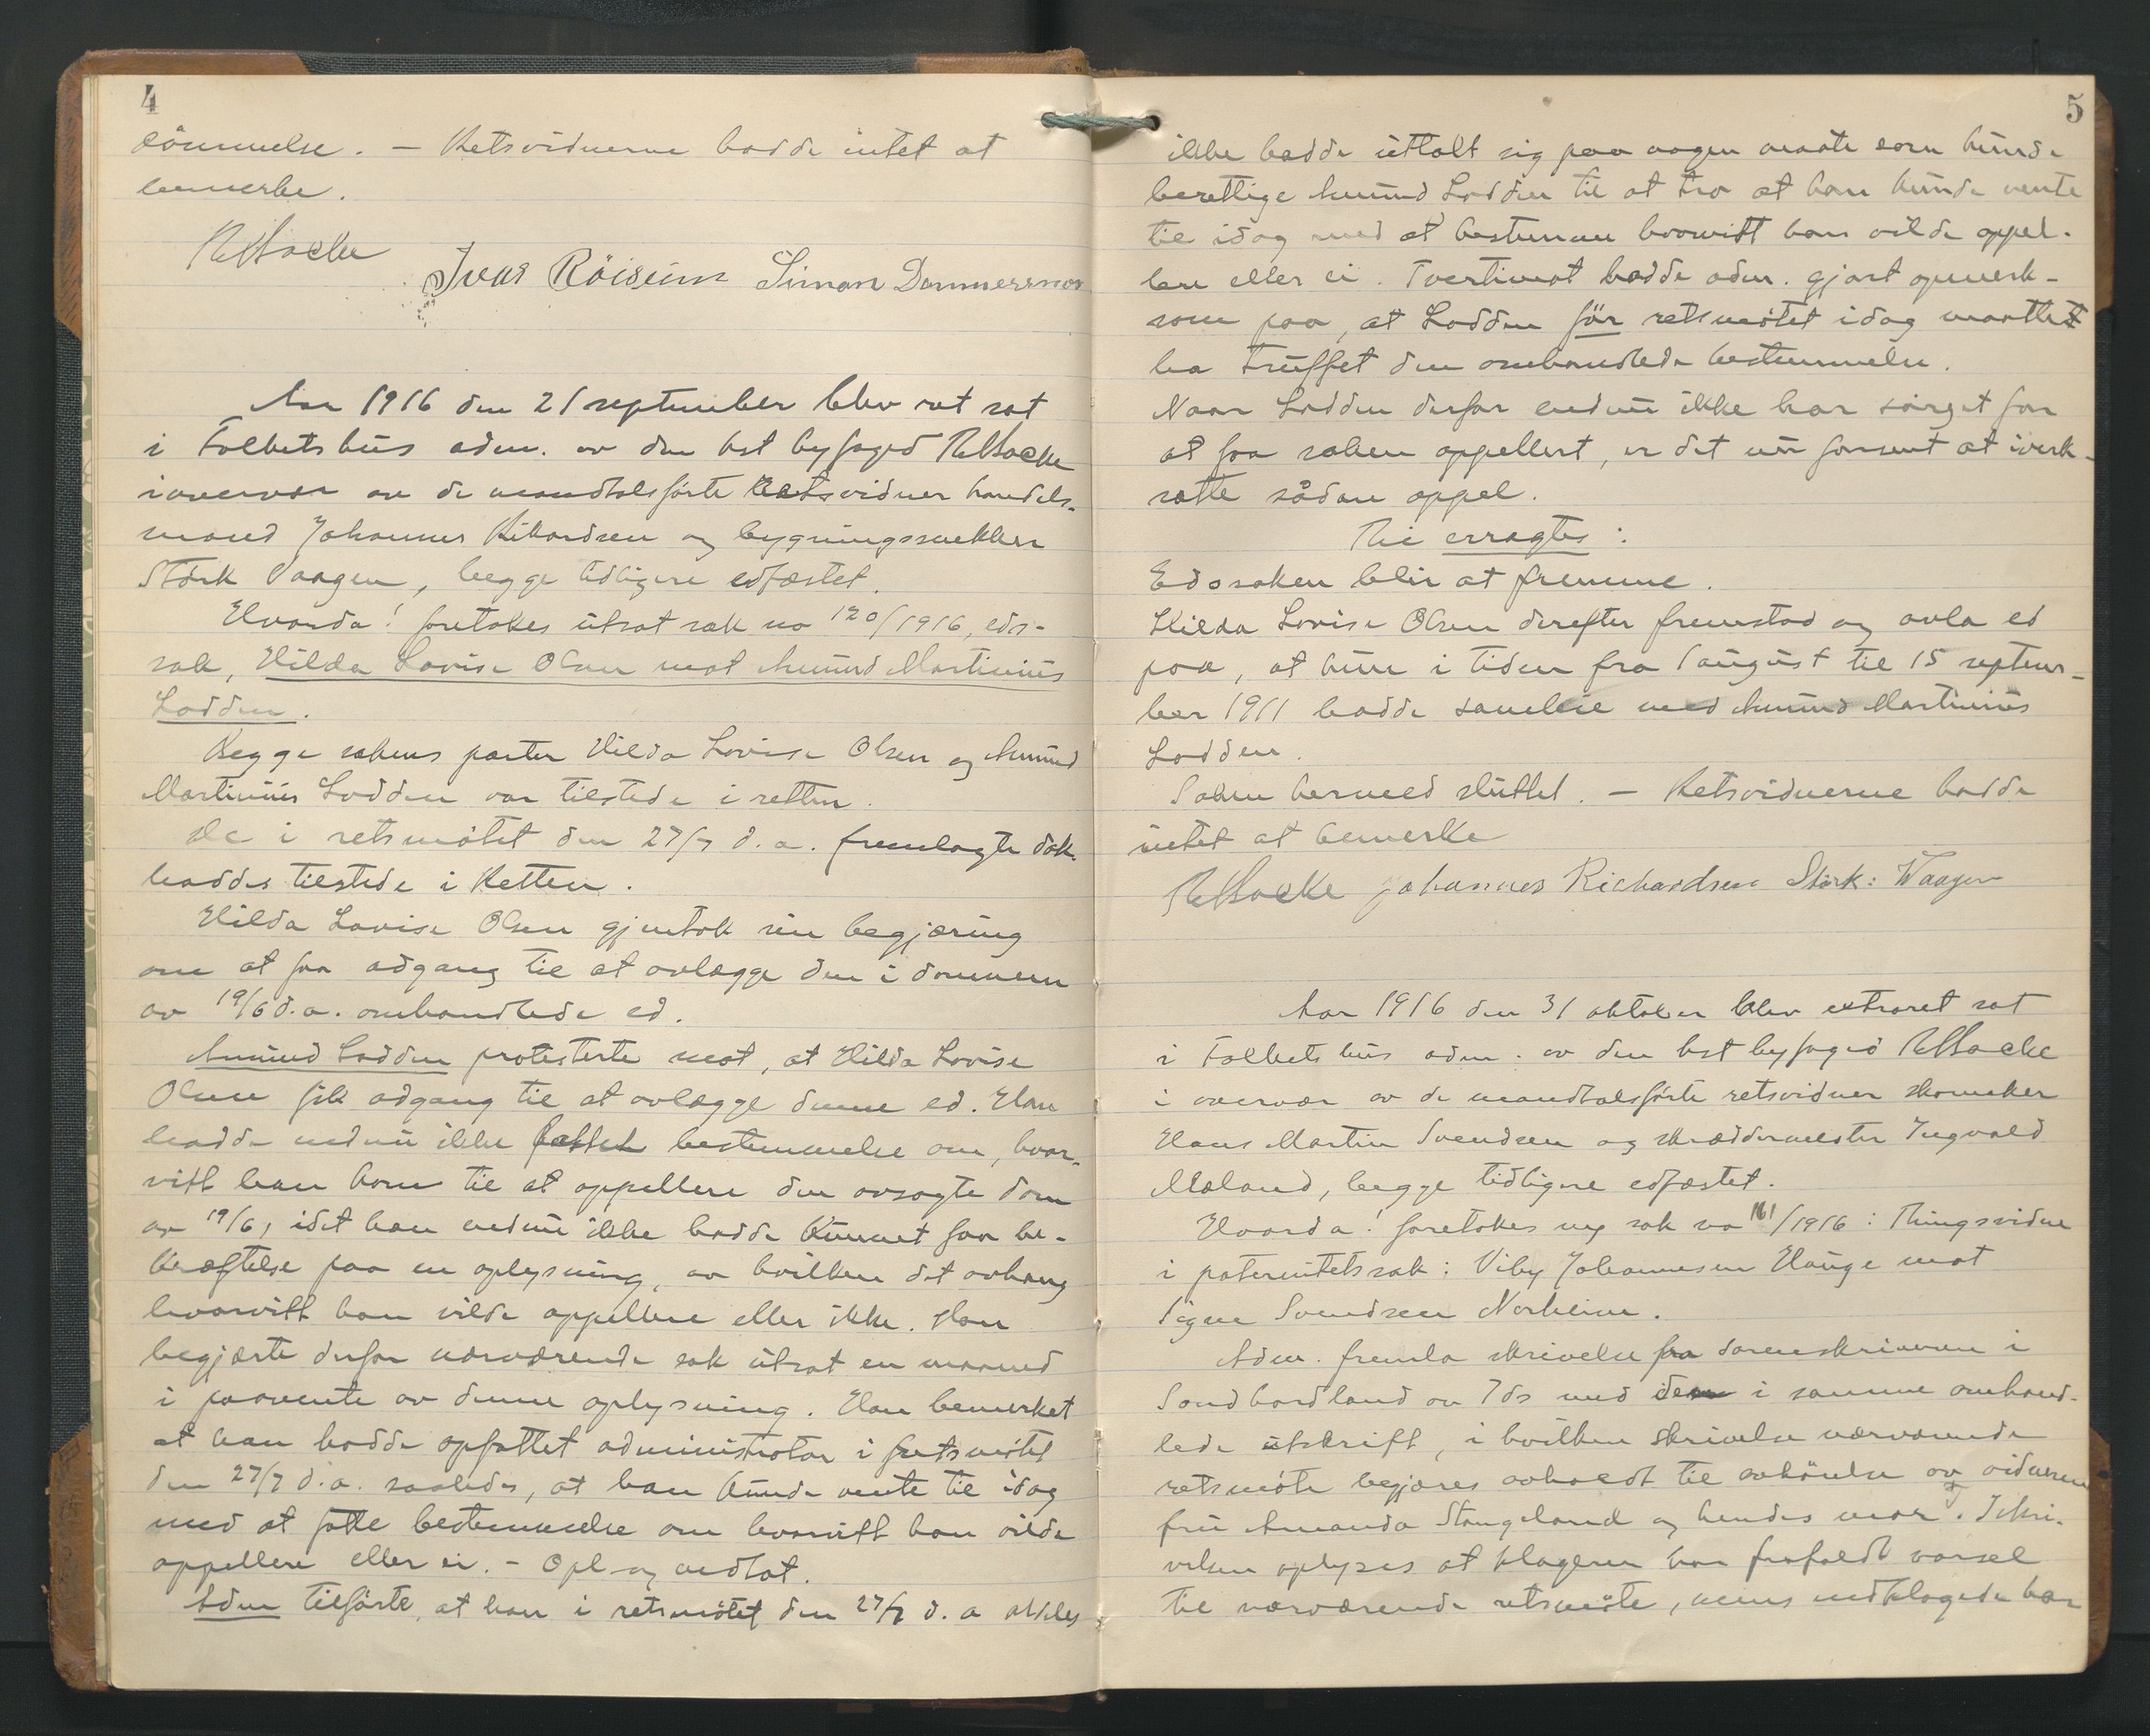 4
dömmelse. — Retsvidnerne hadde intet at
bemerke.
Ivar Röisum Simon Dommersnes
Aar 1916 den 21 september blev ret sat
i Folkets hus adm. av den kst byfoged
i overvær av de mandtalsförte Retsvidner handels-
mand Johannes Rikardsen og bygningssnekker
Störk Vaagen, begge tidligere edfæstet.
Hvorda! foretokes utsat sak no 120/1916, eds-
sak, Hilda Lovise Olsen mot Amund Martinius
Lodden.
Begge sakens parter Hilda Lovise Olsen og Amund
Martinius Lodden var tilstede i retten.
De i retsmötet den 27/7 d.a. fremlagte dok.
haddes tilstede i Retten.
Hilda Lovise Olsen gjentok sin begjæring
om at faa adgang til at avlægge den i dommen
av 19/6 d.a. omhandlede ed.
Amund Lodden protesterte mot, at Hilda Lovise
Olsen fik adgang til at avlægge denne ed. Han
hadde endnu ikke fattet bestemmelse om, hvor-
vitt han kom til at appellere den avsagte dom
av 19/6, idet han endnu ikke hadde kunnet faa be-
kræftelse paa en oplysning, av hvilken det avhang
hvorvitt han vilde appellere eller ikke. Han
begjærte derfor nærværende sak utsat en maaned
i paavente av denne oplysning. Han bemerket
at han hadde opfattet administrator i retsmötet
den 27/7 d.a. saaledes, at han kunde vente til idag
med at fatte bestemmelse om hvorvitt han vilde
appellere eller ei. - Opl og vedtat.
Adm tilförte, at han i retsmötet den 27/7 d.a aldeles
5
ikke hadde uttalt sig paa nogen maate som kunde
berettige Amund Lodden til at tro at han kunde vente
til idag med at bestemme hvorvitt han vilde appel-
lere eller ei. Tvertimot hadde adm. gjort opmerk-
som paa, at Lodden för retsmötet idag maatte
ha truffet den omhandlede bestemmelse.
Naar Lodden derfor endnu ikke har sörget for
at faa saken appellert, er det nu forsent at iverk-
sætte sådan appel.
Ti erragtes:
Edssaken blir at fremme.
Hilda Lovise Olsen derefter fremstod og avla ed
paa, at hun i tiden fra 1 august til 15 septem-
ber 1911 hadde samleie med Amund Martinius
Lodden.
Saken hermed sluttet. — Retsvidnerne hadde
intet at bemerke
Johannes Richardsen Störk: Waagen
Aar 1916 den 31 oktober blev extraret sat
i Folkets hus adm. av den kst byfoged
i overvær av de mandtalsförte retsvidner skomaker
Hans Martin Svendsen og skræddermester Ingvald
Mæland, begge tidligere edfæstet.
Hvorda! foretokes ny sak no 161/1916: Thingsvidne
i paternitetssak: Viby Johannesen Hauge mot
Signe Svendsen Norheim.
Adm. fremla skrivelse fra sorenskriveren i
Sondhordland av 7 ds med den i samme omhand-
lede utskrift, i hvilken skrivelse nærværende
retsmöte begjæres avholdt til avhörelse av vidnerne
fru Amanda Stangeland og hendes mor. I skri-
velsen oplyses at klageren har frafaldt varsel
til nærværende retsmöte, mens indklagede har